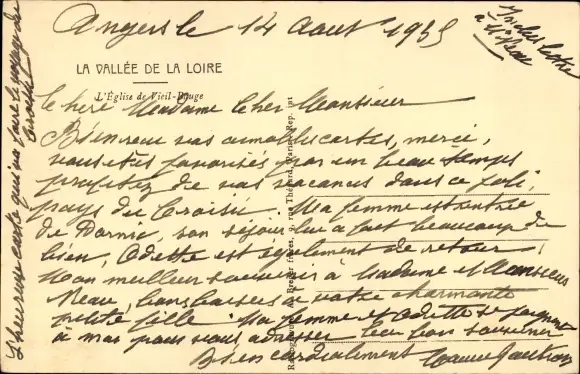 Angers le 14 Aout 1935
LA VALLÉE DE LA LOIRE
L'Église de Vieil-Bauge
Chère Madame cher Monsieur
Bien reçu vos aimables cartes, merci,
vous êtes favorisés par un beau temps
profitez de vos vacances dans ce joli
pays du Croisic. Ma femme est rentrée
de Pornic, son séjour lui a fait beaucoup de
bien, Odette est également de retour.
Mon meilleur souvenir à Madame et Monsieur
Neau, bons baisers à votre charmante
petite fille. Ma femme et Odette se joignent
à moi pour vous adresser leur bon souvenir
Bien cordialement
L'heureuse carte qui va faire le voyage du
Croisic
lettre
à Mr Neau
frères, rue Thénard, Paris, Rep. int